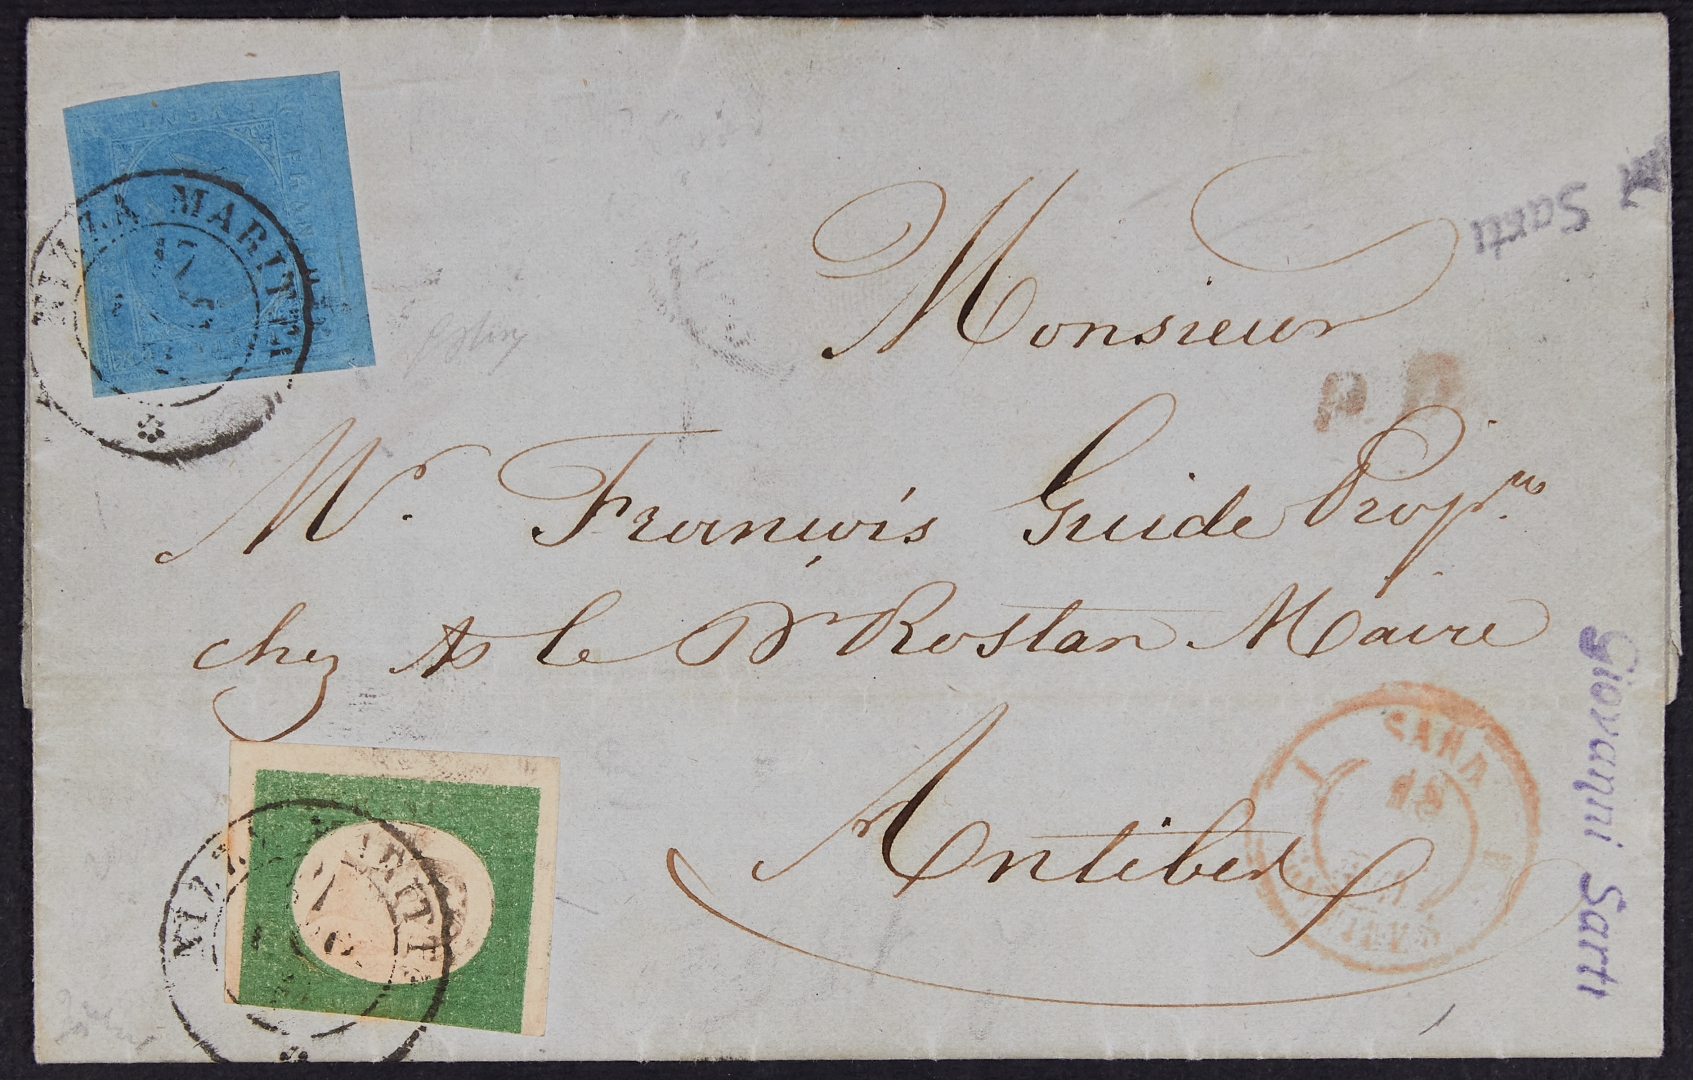 NIZZA MARITT.A
17
Sarti
Monsieur
P. D.
Mr. François Guide Propre
chez Mr le Dr Rostan Maire
Antibes
NIZZA MARITT.A
SARD.
18
ANTIBES
Giovanni Sarti